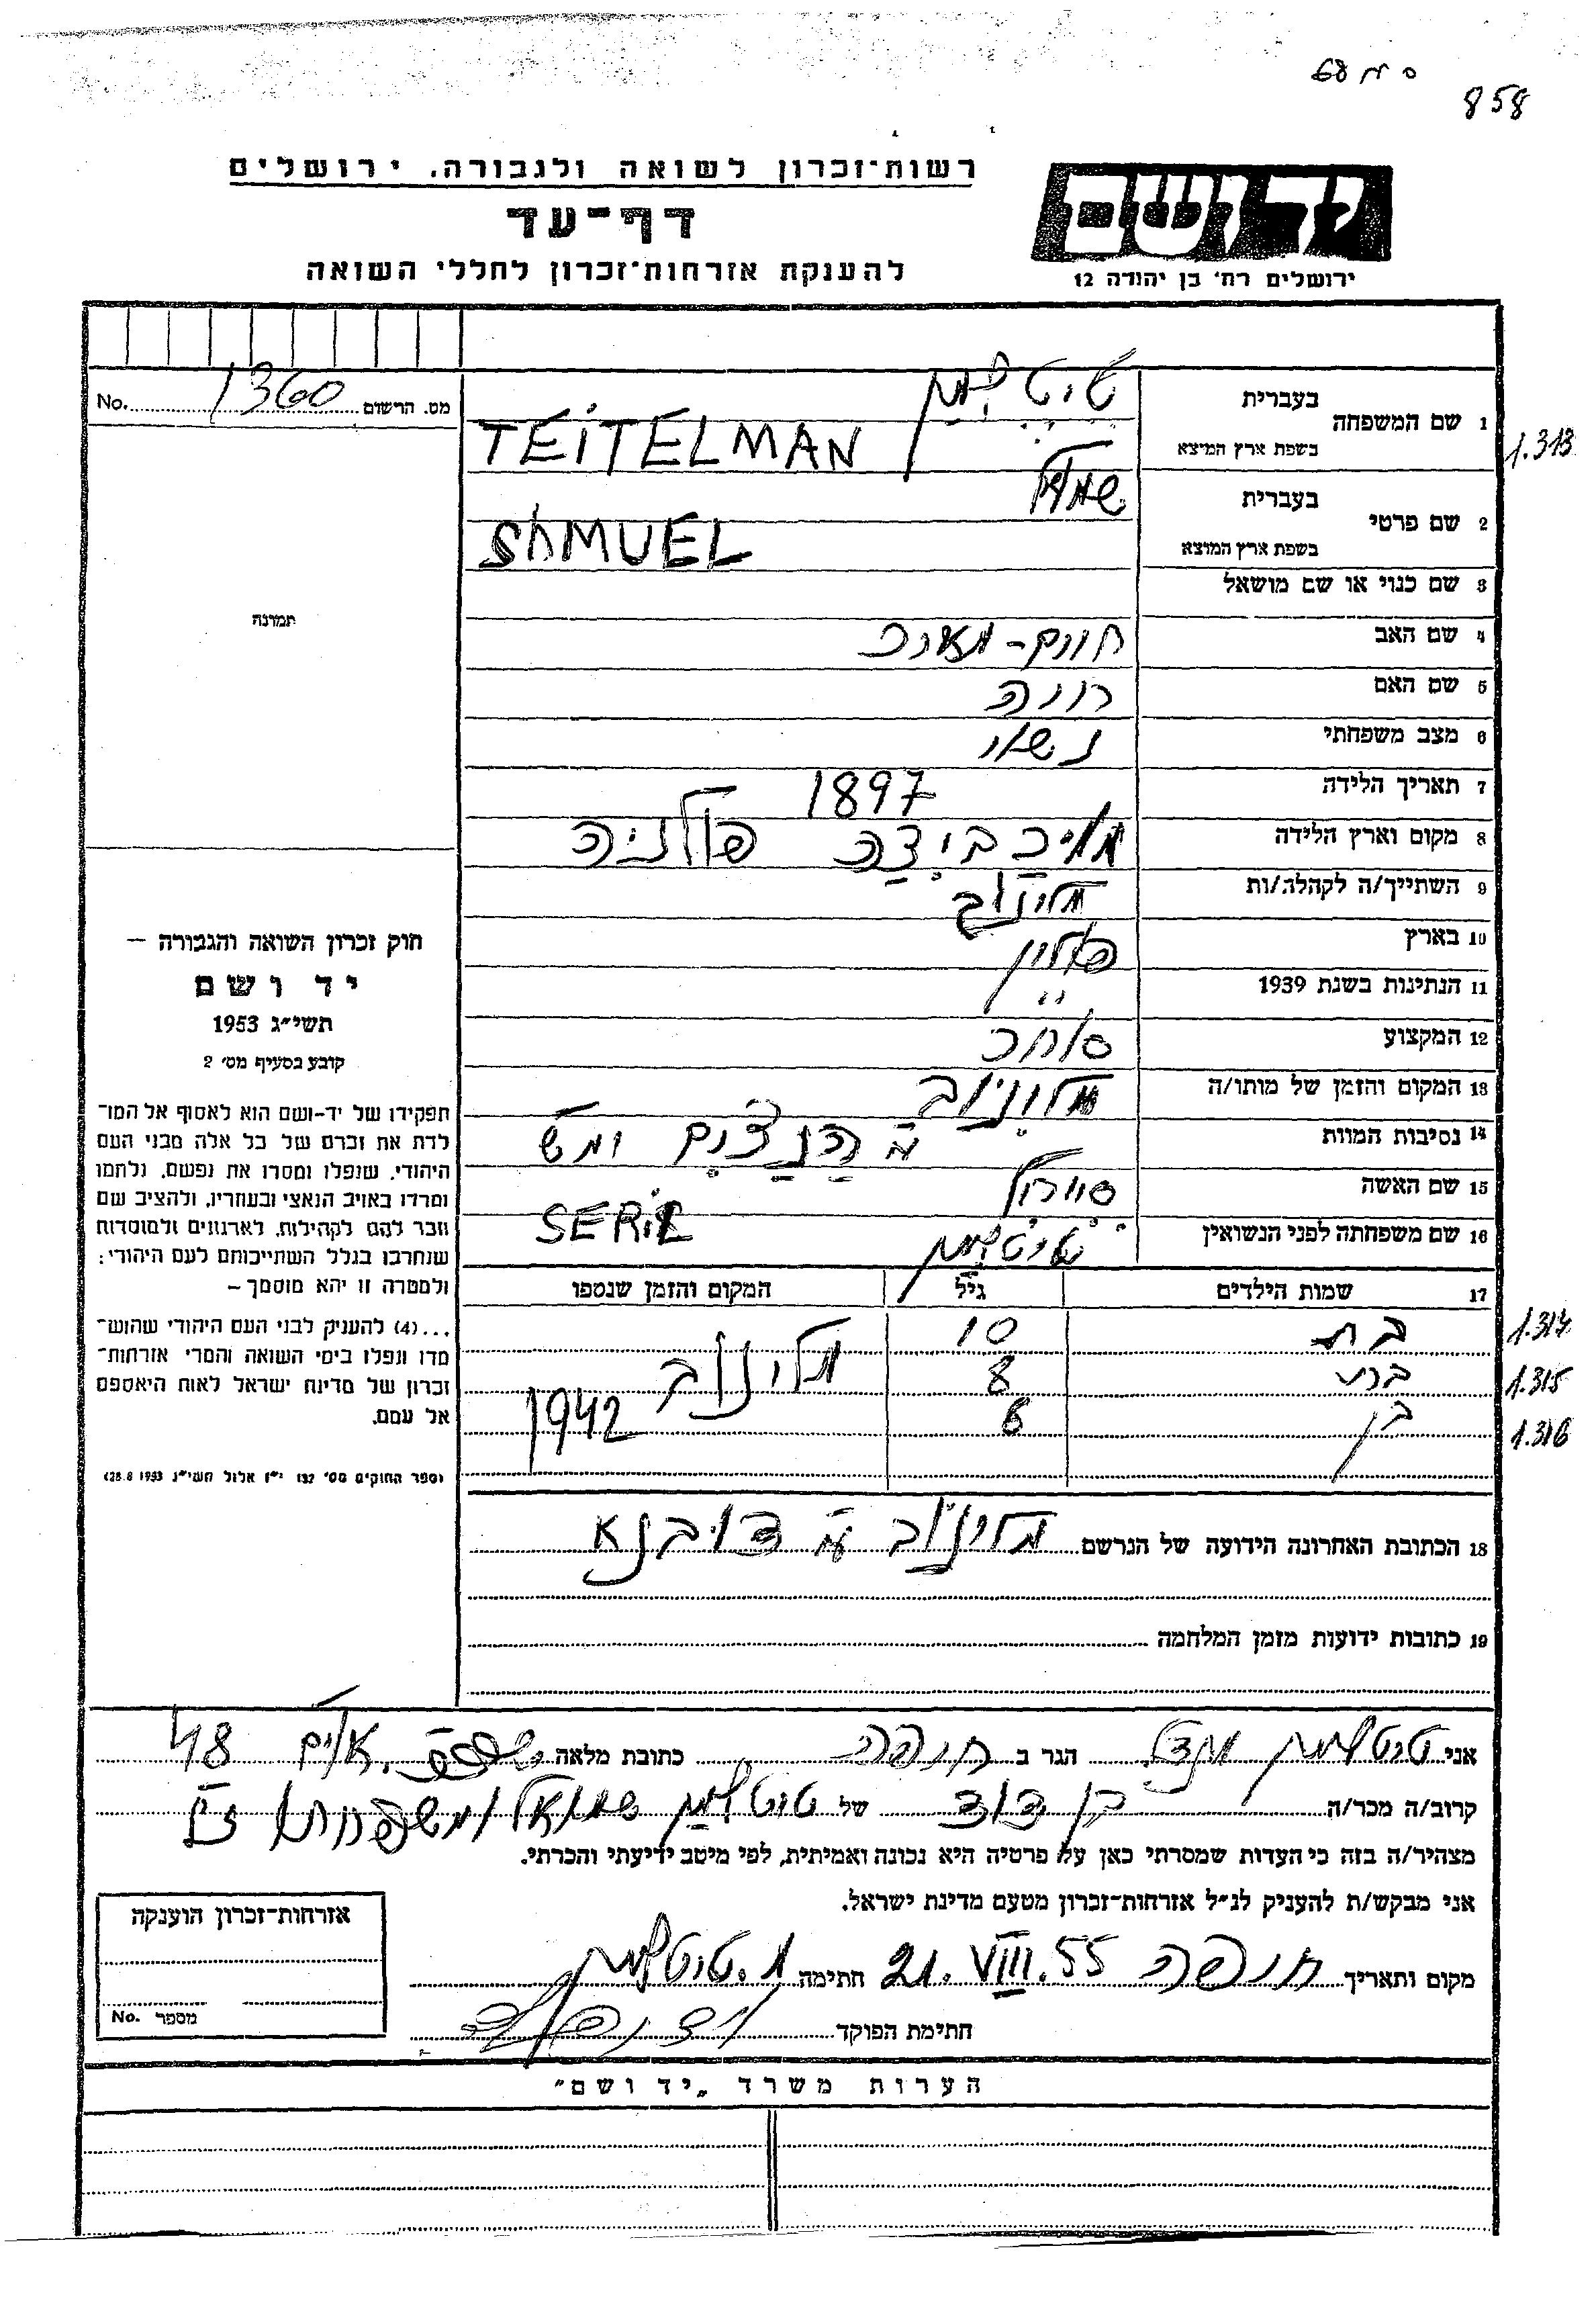 858
רשות־זכרון לשואה ולגבורה. ירושלים
יד ושם
דף־עד
להענקת אזרחות־זכרון לחללי השואה
ירושלים רח' בן יהודה 12
No. 1360 מס. הרשום
1 שם המשפחה בעברית טיטלמן
1.313
בשפת ארץ המוצא TEITELMAN
2 שם פרטי בעברית שמואל
בשפת ארץ המוצא SHMUEL
3 שם כנוי או שם מושאל
תמונה
4 שם האב חיים-מאיר
5 שם האם חיה
6 מצב משפחתי נשוי
7 תאריך הלידה 1897
8 מקום וארץ הלידה פולניה
9 השתייך/ה לקהלה/ות מלינוב
10 בארץ פולין
11 הנתינות בשנת 1939 "
12 המקצוע סוחר
13 המקום והזמן של מותו/ה מלינוב
14 נסיבות המוות
15 שם האשה סיריל
SERIL
16 שם משפחתה לפני הנשואין טיטלמן
17 שמות הילדים גיל המקום והזמן שנספו
בת 10 מלינוב 1.314
בת 8 1942 1.315
בן 6 1.316
18 הכתובת האחרונה הידועה של הנרשם מלינוב ע"י דובנא
19 כתובות ידועות מזמן המלחמה
חוק זכרון השואה והגבורה —
יד ושם
תשי"ג 1953
קובע בסעיף מס' 2
תפקידו של יד-ושם הוא לאסוף אל המו־
לדת את זכרם של כל אלה מבני העם
היהודי, שנפלו ומסרו את נפשם, נלחמו
ומרדו באויב הנאצי ובעוזריו, ולהציב שם
וזכר להם לקהילות, לארגונים ולמוסדות
שנחרבו בגלל השתייכותם לעם היהודי;
ולמטרה זו יהא מוסמך –
...(4) להעניק לבני העם היהודי שהוש־
מדו ונפלו בימי השואה והמרי אזרחות־
זכרון של מדינת ישראל לאות היאספם
אל עמם.
(ספר החוקים מס' 132 י"ז אלול תשי"ג 28.8.1953)
אני טיטלמן הגר ב חיפה כתובת מלאה 48
קרוב/ה מכר/ה בן דוד של טיטלמן שמואל ומשפחתו ז"ל
מצהיר/ה בזה כי העדות שמסרתי כאן על פרטיה היא נכונה ואמיתית, לפי מיטב ידיעתי והכרתי.
אני מבקש/ת להעניק לנ"ל אזרחות־זכרון מטעם מדינת ישראל.
מקום ותאריך חיפה 21.VIII.55 חתימה מ. טיטלמן
חתימת הפוקד
אזרחות־זכרון הוענקה
No. מספר
הערות משרד „יד ושם"